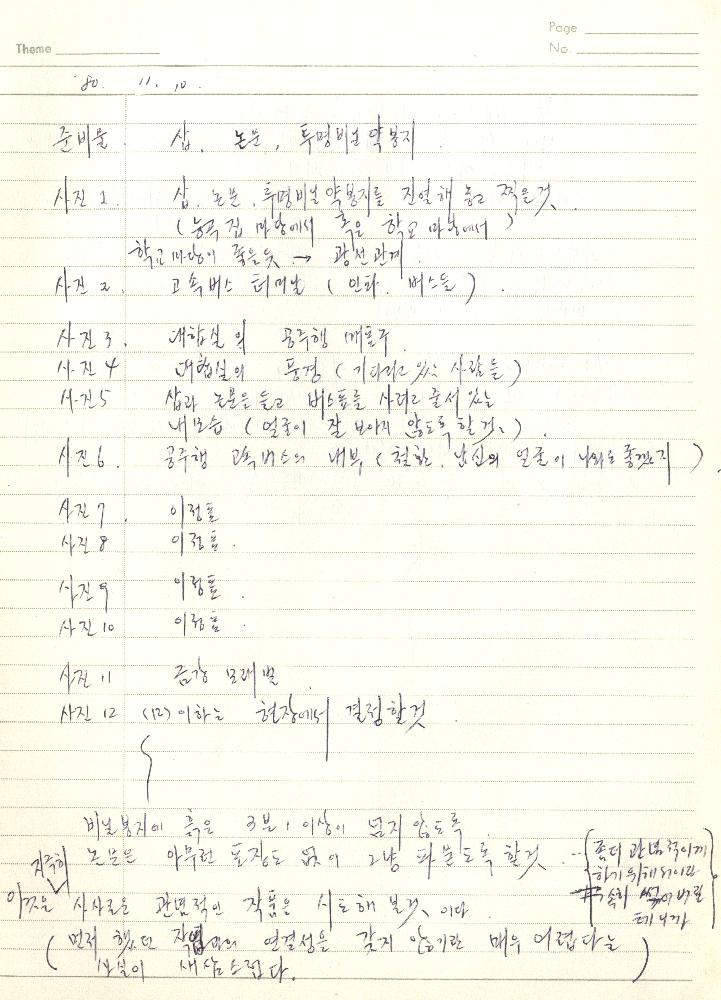 Page
Theme
No.
'80. 11. 10.
준비물 삽, 논문, 투명비닐약봉지
사진 1. 삽, 논문, 투명비닐약봉지를 진열해 놓고 찍을것.
( 능곡 집 마당에서 혹은 학교 마당에서 )
학교마당이 좋을듯 → 광선관계.
사진 2. 고속버스 터미날 ( 인파, 버스들 ).
사진 3. 대합실의 공주행 개표구
사진 4 대합실의 풍경 ( 기다리고 있는 사람들 )
사진 5 삽과 논문을 들고 버스표를 사려고 줄서 있는
내모습 ( 얼굴이 잘 보이지 않도록 할것. ).
사진 6. 공주행 고속버스의 내부 ( 철한, 남신의 얼굴이 나와도 좋겠지 ).
사진 7. 이정표
사진 8 이정표.
사진 9 이정표.
사진 10 이정표.
사진 11 금강 모래벌.
사진 12 (12) 이하는 현장에서 결정할것.
비닐봉지에 흙은 3분 1 이상이 넘지 않도록.
논문은 아무런 포장도 없이 그냥 파묻도록 할것
좀더 관념적이게
하기 위해서이다
속히 썩어버릴
테니까
지극히
이것은 사사로운 관념적인 작품을 시도해 볼것. 이다
( 먼저 했던 작업과의 연결성을 갖지 않기란 매우 어렵다는
사실이 새삼스럽다. )